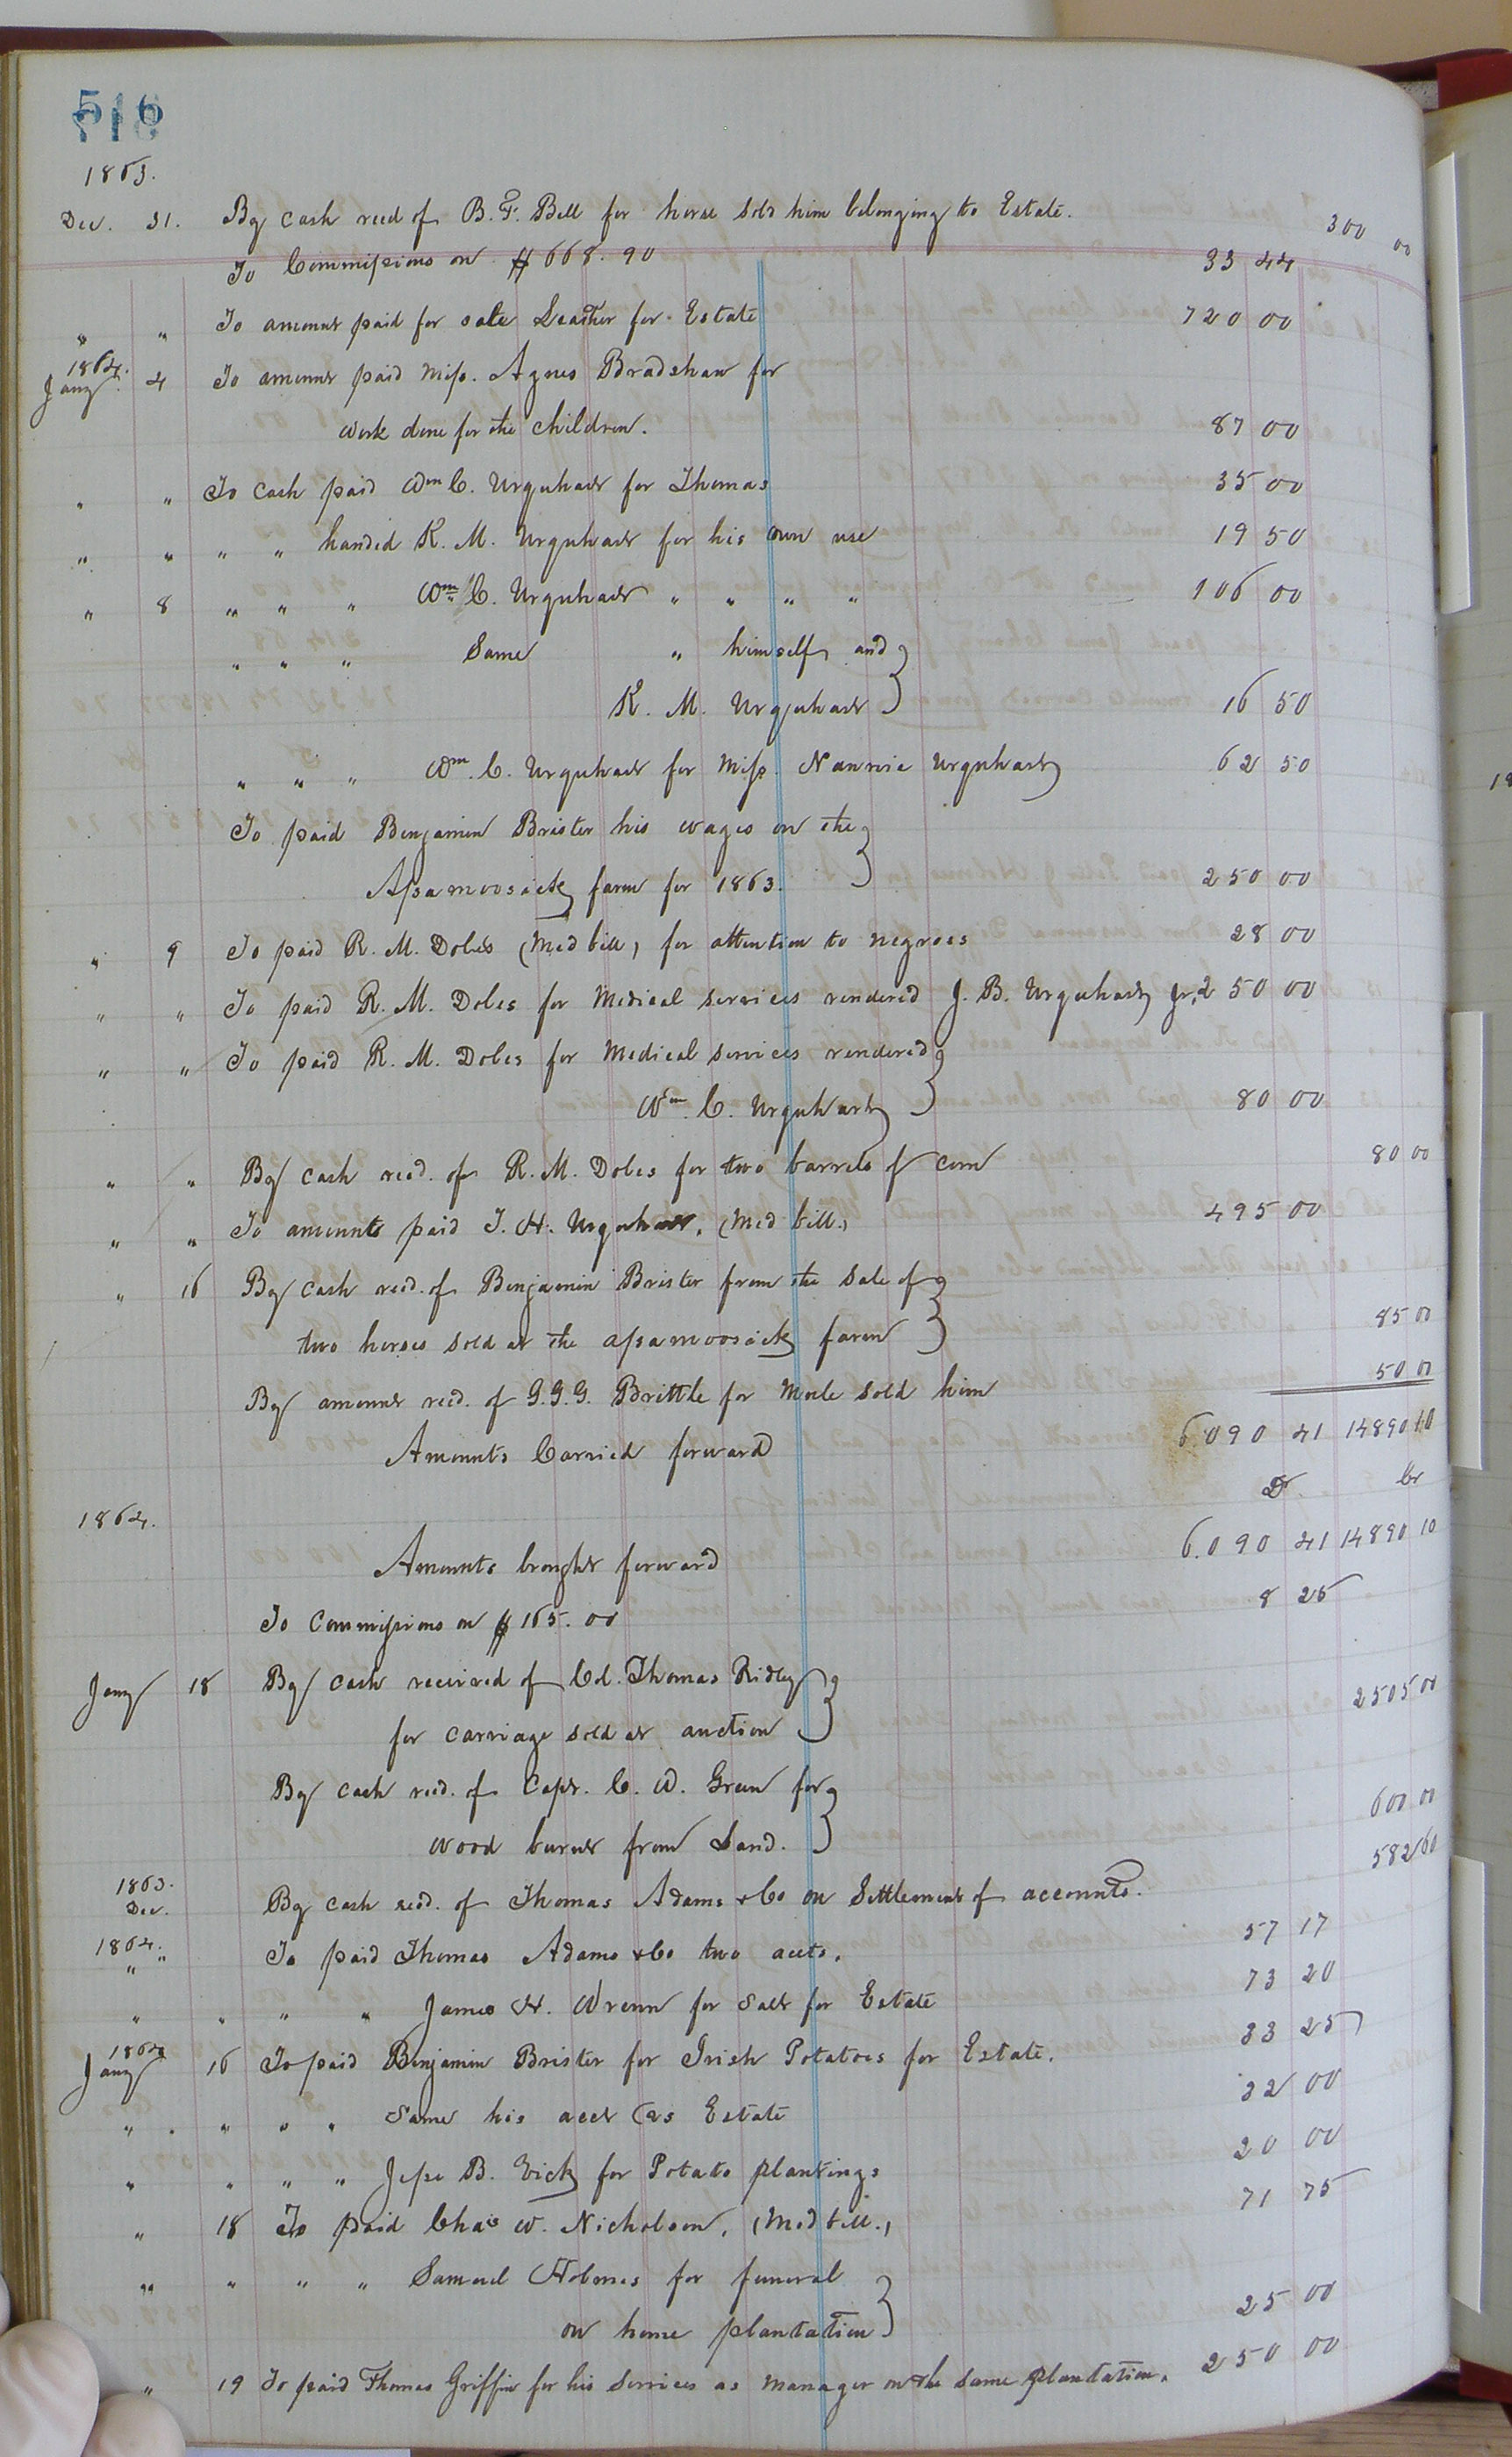 516
1863.
Dec. 31. By cash recd of B. F. Bell for horse sold him belonging to Estate. 300 00
To Commissions on $668.90 33 44
" " To amount paid for sole Leather for Estate 720 00
1864.
Jany 4 To amount paid Miss. Agnes Bradshaw for
work done for the children. 87 00
" " To cash paid Wm C. Urquhart for Thomas 35 00
" " " " handed R. M. Urquhart for his own use 19 50
" 8 " " " Wm C. Urquhart " " " " 106 00
" " " Same " himself and }
R. M. Urquhart } 16 50
" " " Wm. C. Urquhart for Miss. Nannie Urquhart 62 50
To paid Benjamin Brister his wages on the }
Assamoosick farm for 1863. } 250 00
" 9 To paid R. M. Doles (Med bill) for attention to negroes 28 00
" " To paid R. M. Doles for Medical services rendered J. B. Urquhart Jr, 250 00
" " To paid R. M. Doles for Medical services rendered }
Wm. C. Urquhart } 80 00
" " By cash recd. of R. M. Doles for two barrels of corn 80 00
" " To amounts paid J. H. Urquhart, (Med bill.) 495 00
" 16 By cash recd. of Benjamin Brister from the sale of }
two horses sold at the assamoosick farm } 85 00
By amount recd. of G. G. G. Brittle for Mule sold him 50 00
Amounts Carried forward 6.090 41 14890 10
Dr. Cr
1864.
Amounts brought forward 6.090 41 14890 10
To Commissions on $165.00 8 25
Jany 18 By cash received of Col. Thomas Ridley }
for carriage sold at auction } 2505 00
By cash recd. of Capt. C. W. Green for }
wood burnt from Land. } 600 00
1863.
Dec. By cash recd. of Thomas Adams & Co on Settlement of accounts. 582 60
1864.
" " To paid Thomas Adams & Co two accts. 57 17
" " " " James H. Wrenn for Salt for Estate 73 20
1864
Jany 16 To paid Benjamin Brister for Irish Potatoes for Estate. 33 25
" " " " Same his acct vs Estate 32 00
" " " " Jesse B. Vick for Potato plantings 20 00
" 18 To paid Chas W. Nicholson, (Med bill.) 71 75
" " " " Samuel Holmes for funeral }
on home plantation } 25 00
" 19 To paid Thomas Griffin for his services as manager on the same plantation. 250 00